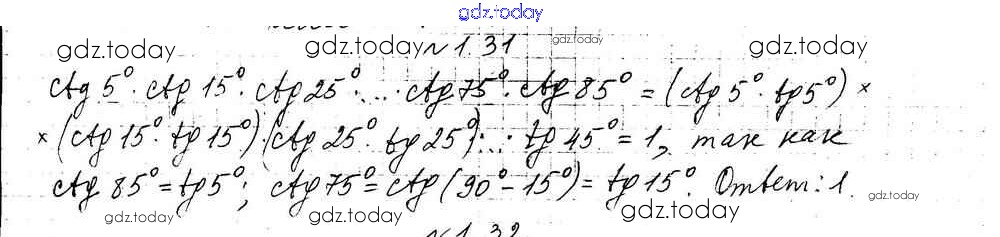 gdz.today
gdz.today gdz.today № 1.31 gdz.today gdz.today
ctg 5° · ctg 15° · ctg 25° · ... · ctg 75° · ctg 85° = (ctg 5° · tg 5°) ×
× (ctg 15° · tg 15°)·(ctg 25° · tg 25°)· ... · tg 45° = 1, так как
ctg 85° = tg 5°; ctg 75° = ctg (90° - 15°) = tg 15°. Ответ: 1.
gdz.today gdz.today gdz.today gdz.today
№ 1.32